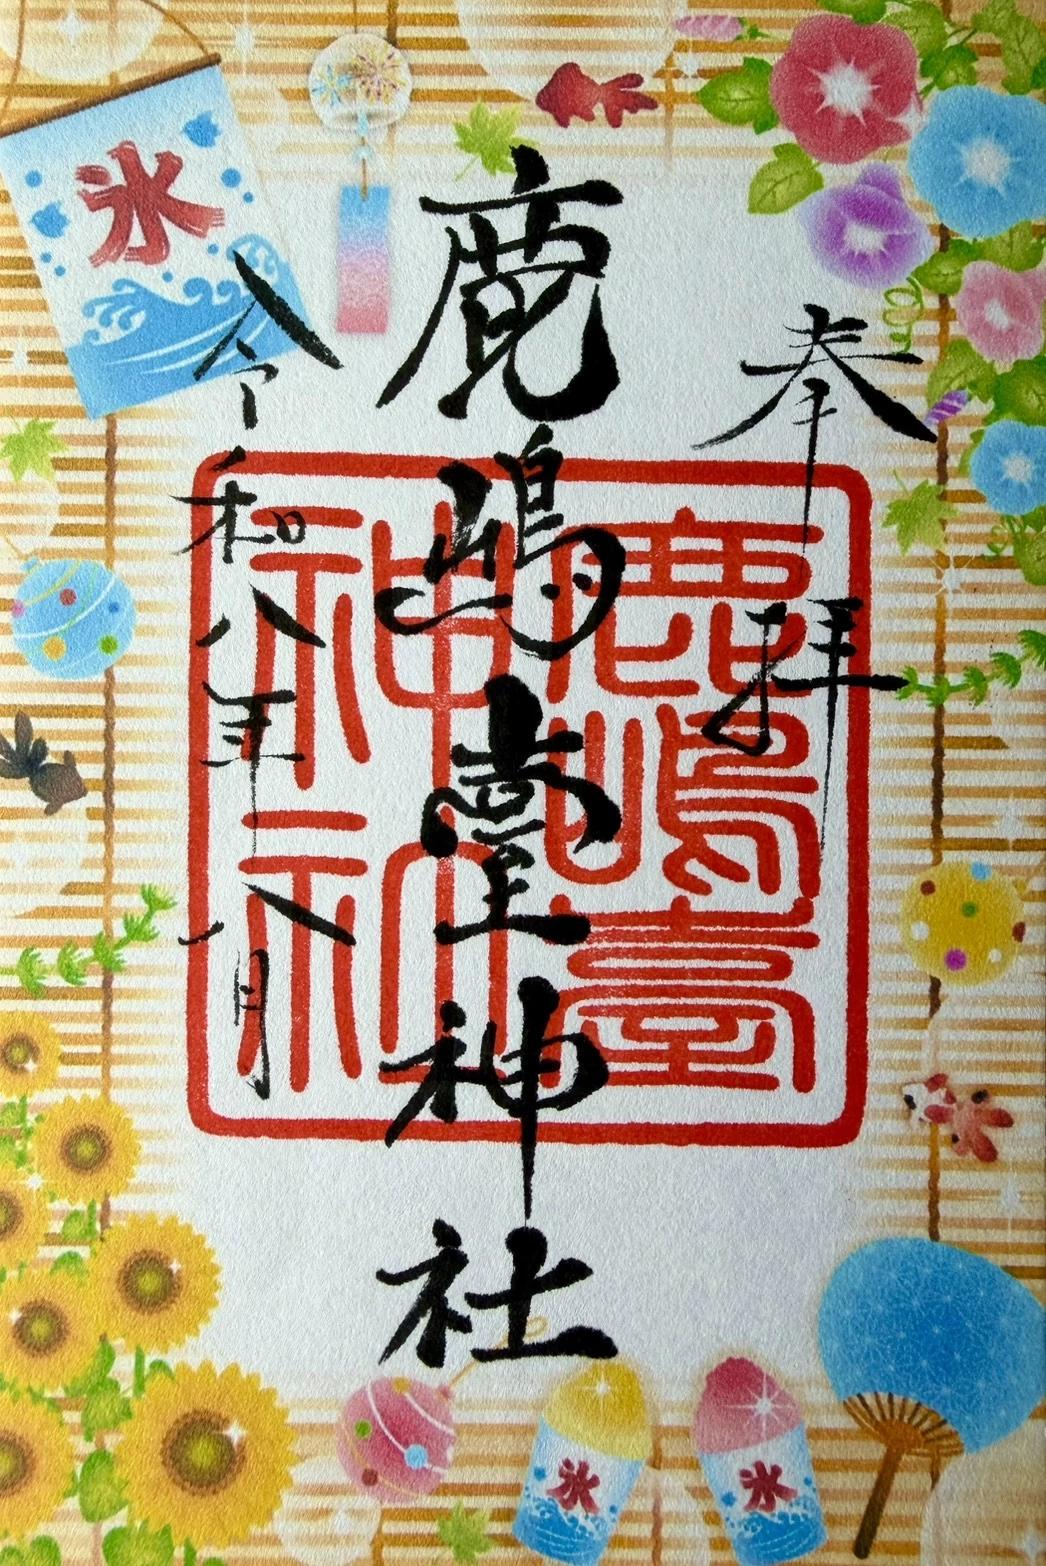 奉拝
鹿嶋臺神社
令和八年八月
鹿嶋臺
神社
氷
氷
氷